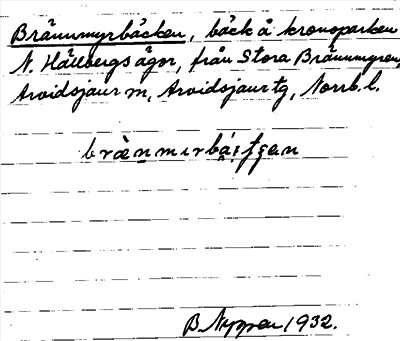 Brännmyrbäcken, bäck å kronoparken
N. Hällbergs ägor, från Stora Brännmyren,
Arvidsjaur m, Arvidsjaur tg, Norrb. l.
bræ̀nmırbá̩ıtʃȩn
B. Nyppen 1932.